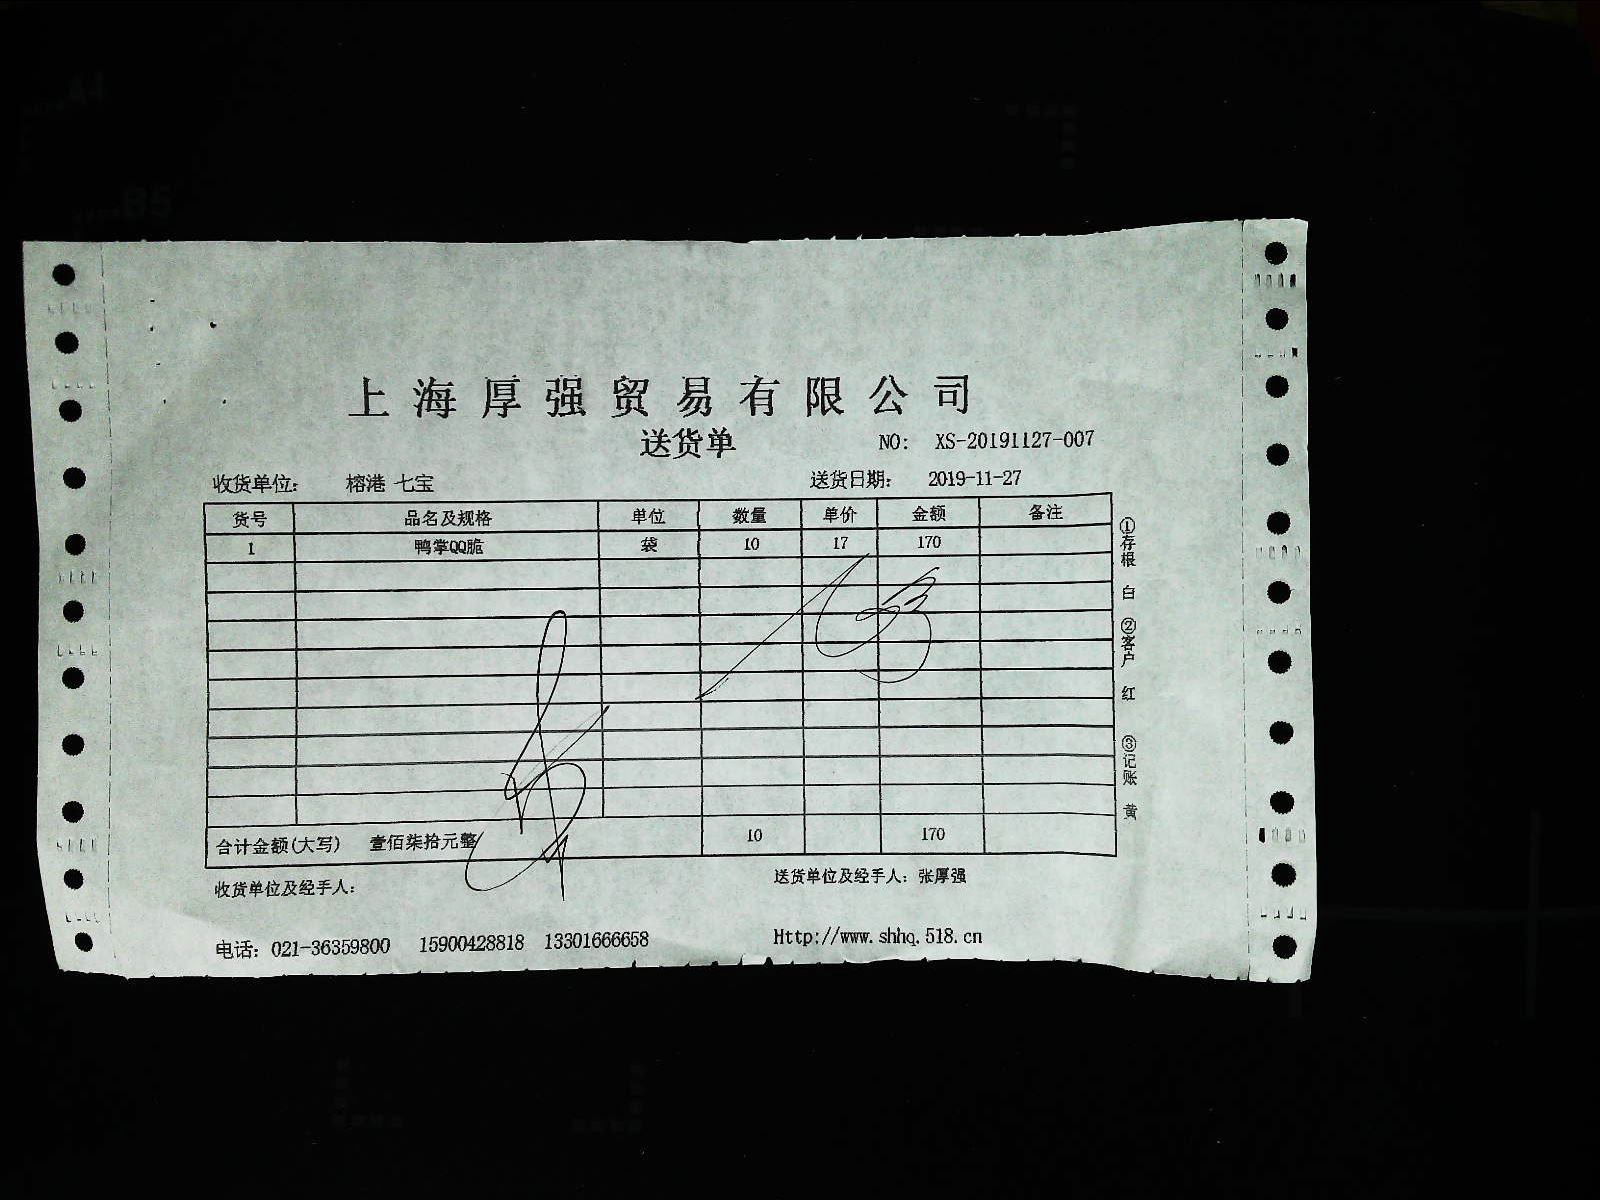 上海厚强贸易有限公司
送货单 NO: XS-20191127-007
收货单位: 榕港 七宝 送货日期: 2019-11-27
货号 品名及规格 单位 数量 单价 金额 备注
1 鸭掌QQ脆 袋 10 17 170
合计金额(大写) 壹佰柒拾元整 10 170
收货单位及经手人: 送货单位及经手人: 张厚强
电话: 021-36359800 15900428818 13301666658 Http://www.shhq.518.cn
①存根 白 ②客户 红 ③记账 黄